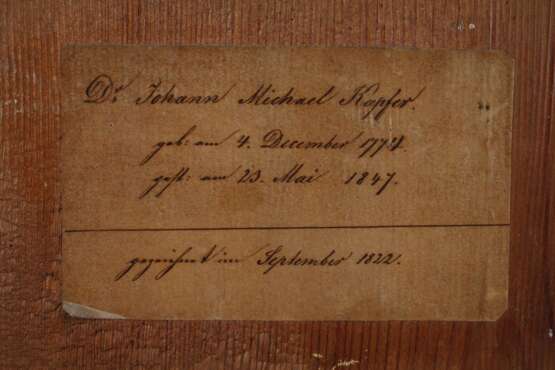 Dr. Johann Michael Kapfer.
geb: am 4. December 1774.
gest: am 23. Mai 1847.
gezeichnet im September 1822.